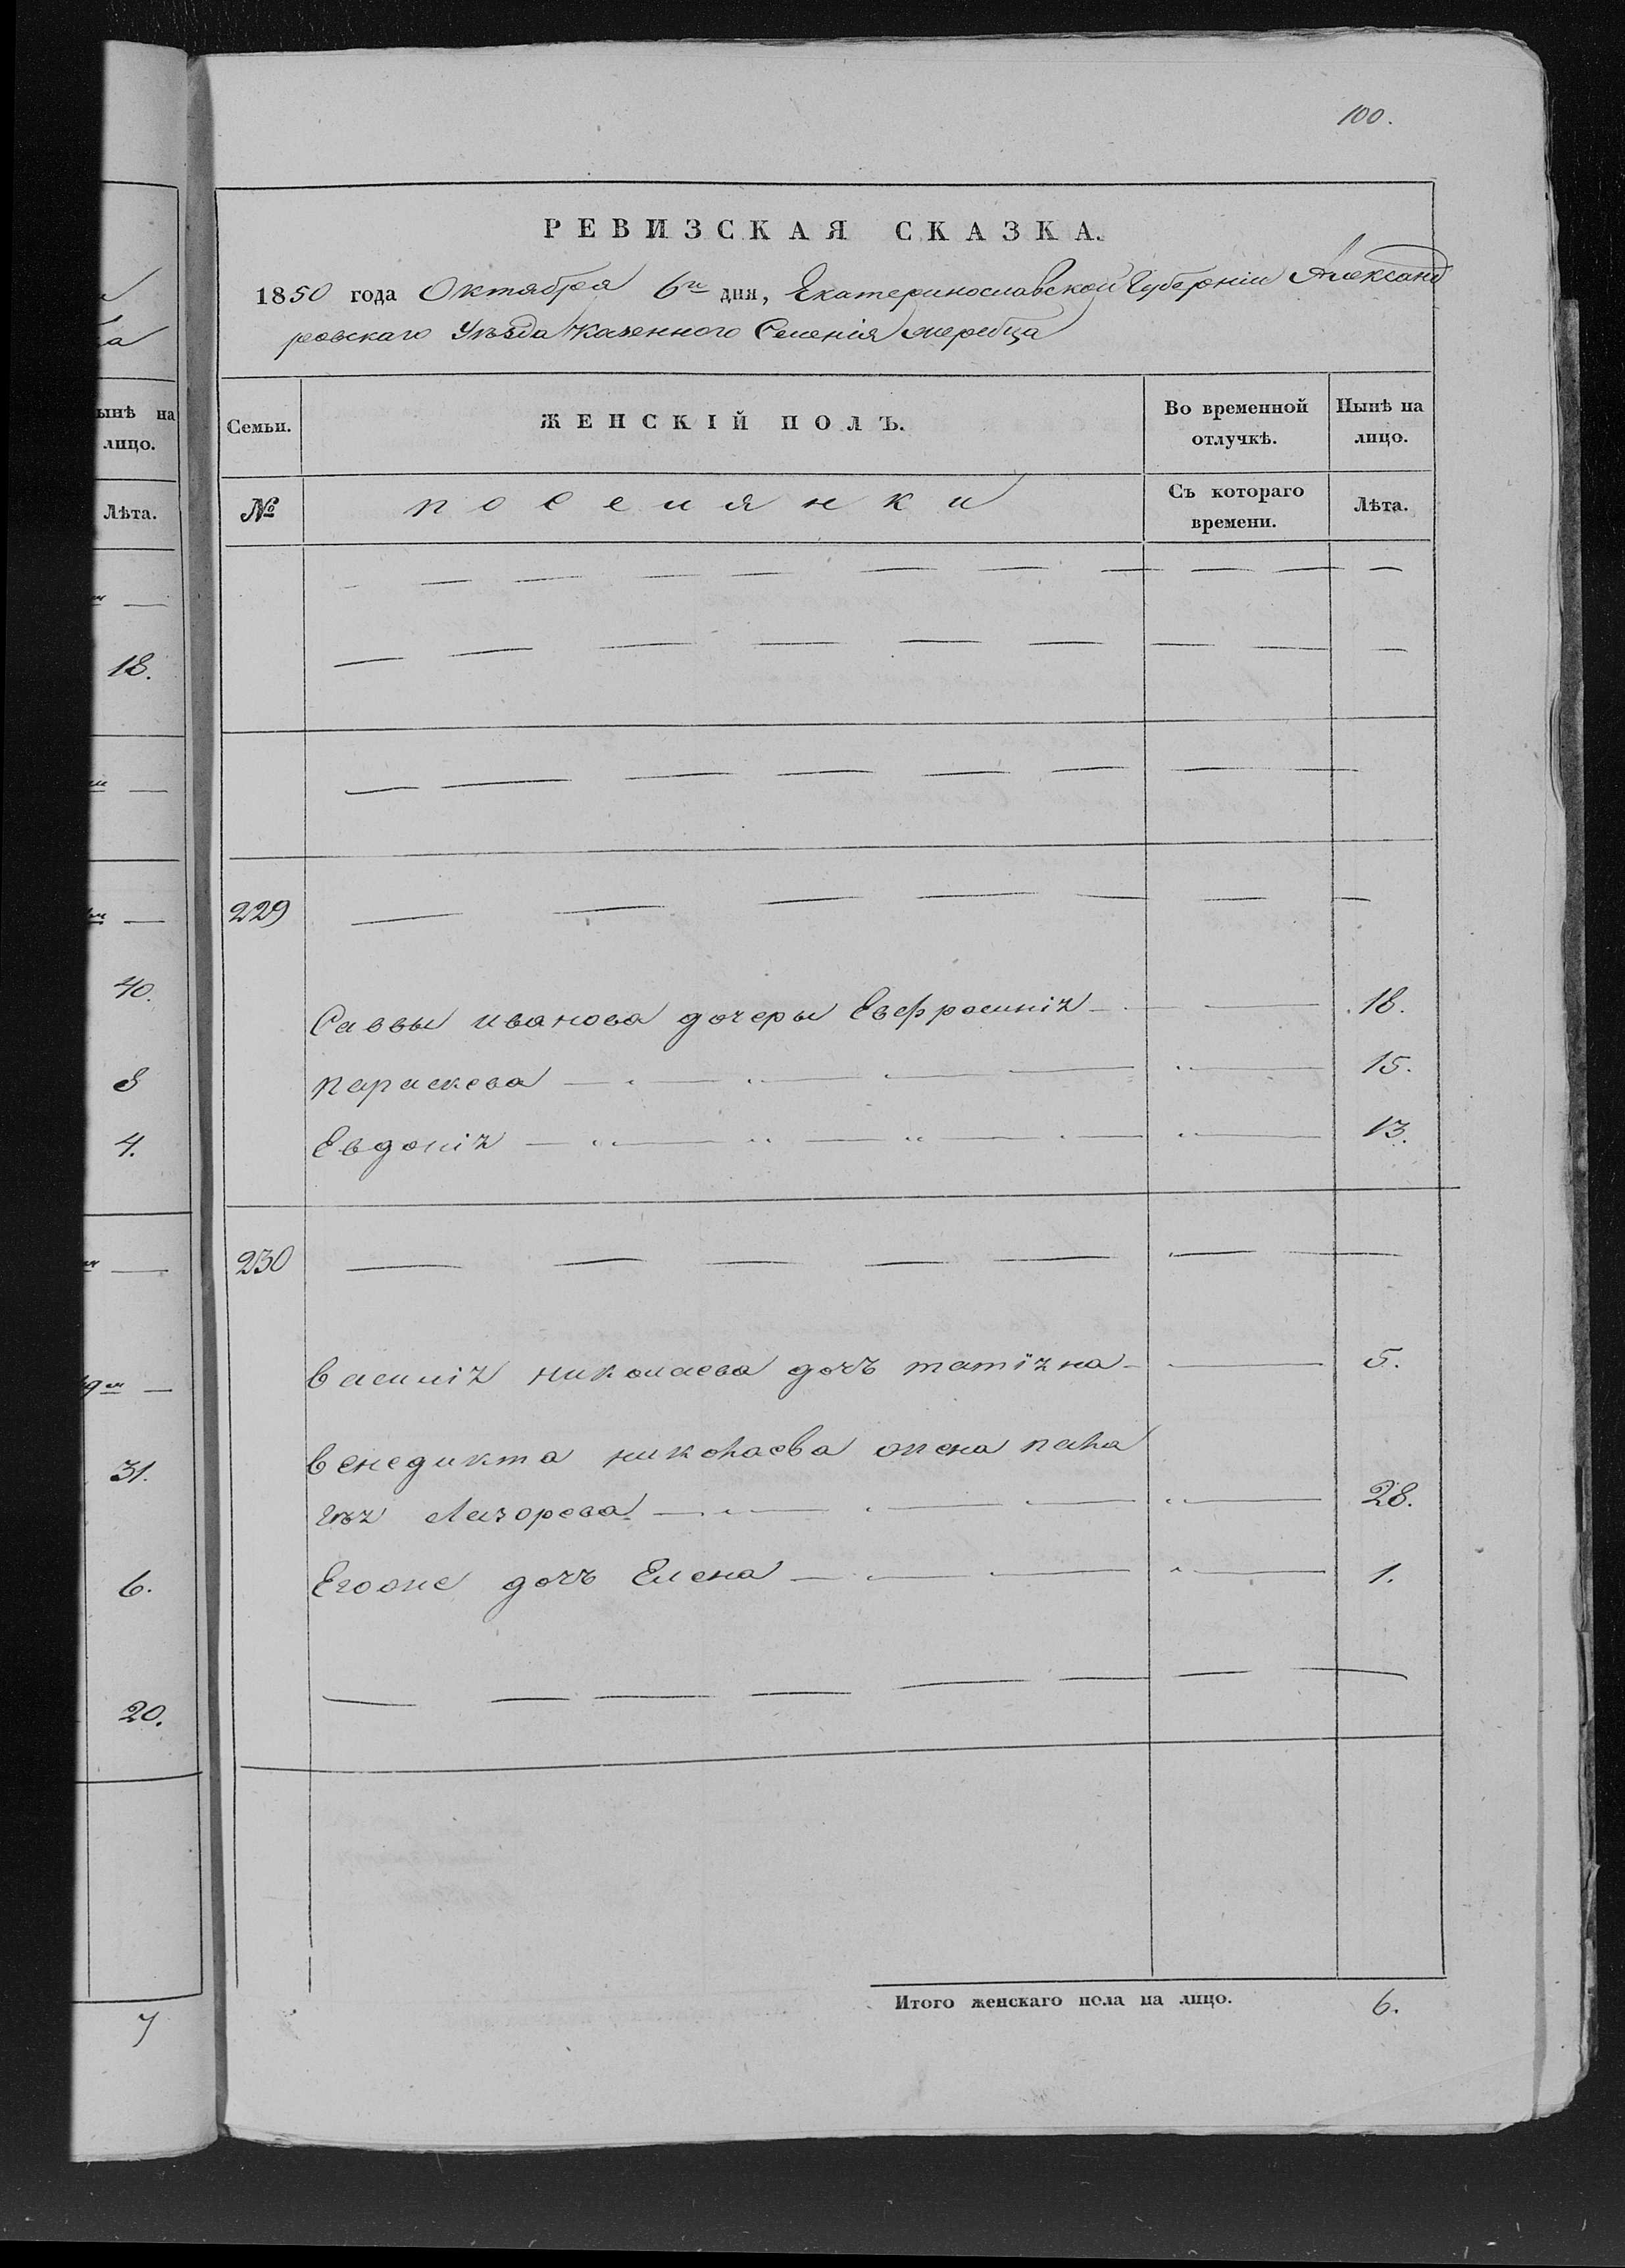 100.
РЕВИЗСКАЯ СКАЗКА.
1850 года Октября 6го дня, Екатеринославской Губерніи Александ
ровскаго Уѣзда Казенного Селенія жеребца
Семьи.
ЖЕНСКІЙ ПОЛЪ.
Во временной
отлучкѣ.
Нынѣ на
лицо.
№
поселянки
Съ котораго
времени.
Лѣта.
229
Саввы иванова дочеры Евфросинія 18.
параскева 15.
Евдокія 13.
230
василія николаева дочъ татіяна 5.
венедикта николаева жена пела
гѣя Лазорева 28.
Егоже дочъ Елена 1.
Итого женскаго пола на лицо. 6.
ынѣ на
лицо.
Лѣта.
18.
40.
8
4.
31.
6.
20.
7